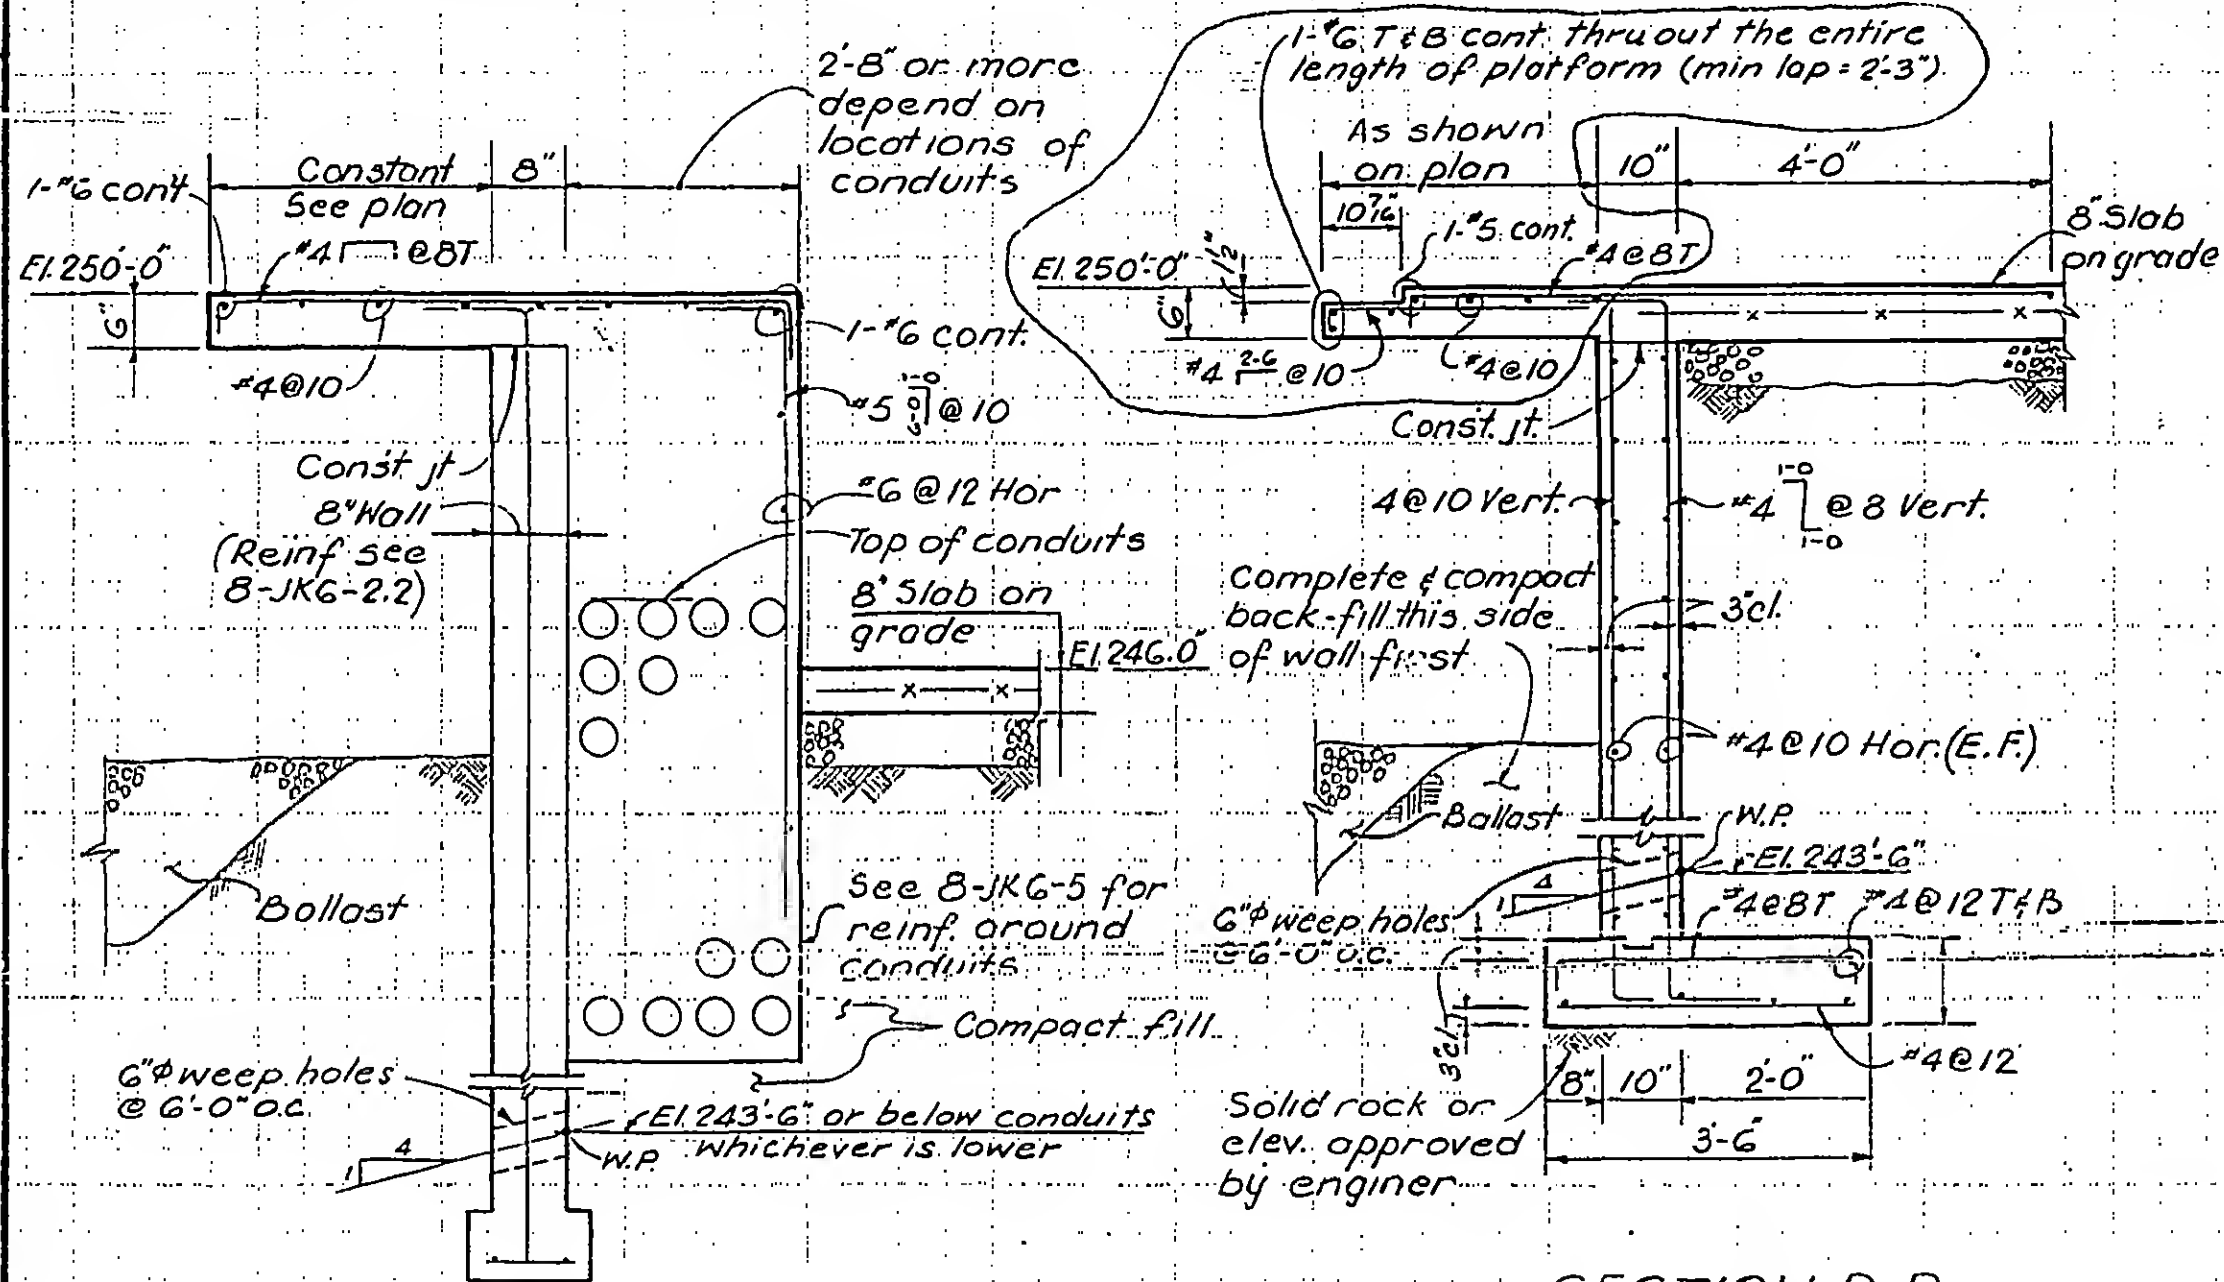 2'-8" or more
depend on
locations of
conduits
Constant
See plan
8"
1-#6 cont
#4 @ 8T
El. 250'-0"
6"
#4@10
1-#6 cont.
1-0
#5 @ 10
Const. jt
8" Wall
(Reinf see
8-JK6-2.2)
#6 @ 12 Hor
Top of conduits
8" Slab on
grade
El. 246.0"
Ballast
See 8-JK6-5 for
reinf. around
conduits
Compact fill
6"φ weep holes
@ 6'-0" o.c.
El. 243'-6" or below conduits
whichever is lower
W.P.
4
1
1-#6 T & B cont. thruout the entire
length of platform (min lap = 2'-3")
As shown
on plan
10"
4'-0"
10 7/16"
1-#5 cont.
#4@8T
8" Slab
on grade
El. 250'-0"
1 1/2"
6"
#4 2-6 @ 10
#4@10
Const. jt.
4@10 Vert.
1-0
#4 @ 8 Vert.
1-0
Complete & compact
back-fill this side
of wall first
3" cl.
#4@10 Hor. (E.F.)
Ballast
W.P.
El. 243'-6"
4
1
6"φ weep holes
@ 6'-0" o.c.
#4@8T
#4@12 T&B
3" cl.
#4@12
8"
10"
2'-0"
3'-6"
Solid rock or
elev. approved
by enginer